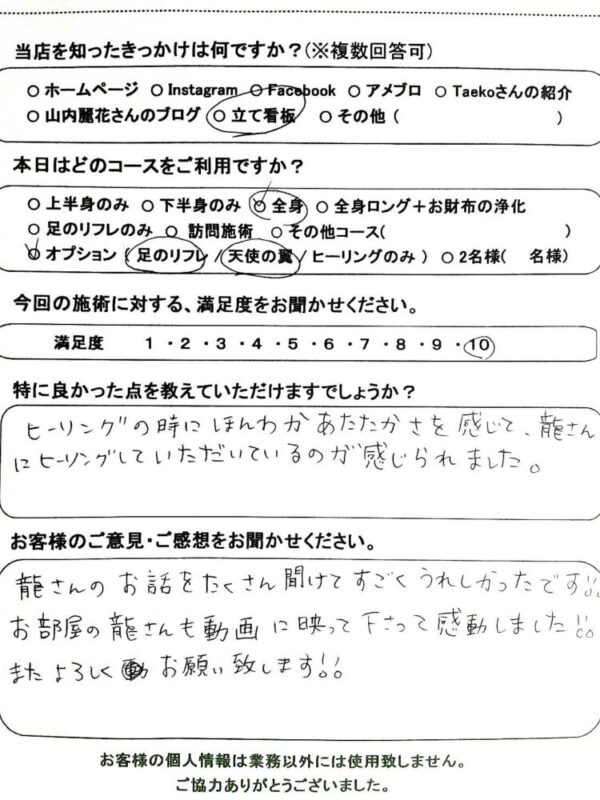 当店を知ったきっかけは何ですか？(※複数回答可)
○ ホームページ ○ Instagram ○ Facebook ○ アメブロ ○ Taekoさんの紹介
○ 山内麗花さんのブログ ○ 立て看板 ○ その他 ( )
本日はどのコースをご利用ですか？
○ 上半身のみ ○ 下半身のみ ○ 全身 ○ 全身ロング＋お財布の浄化
○ 足のリフレのみ ○ 訪問施術 ○ その他コース( )
○ オプション ( 足のリフレ / 天使の翼 / ヒーリングのみ ) ○ 2名様( 名様)
今回の施術に対する、満足度をお聞かせください。
満足度 1 ・ 2 ・ 3 ・ 4 ・ 5 ・ 6 ・ 7 ・ 8 ・ 9 ・ 10
特に良かった点を教えていただけますでしょうか？
ヒーリングの時にほんわかあたたかさを感じて、龍さん
にヒーリングしていただいているのが感じられました。
お客様のご意見・ご感想をお聞かせください。
龍さんのお話をたくさん聞けてすごくうれしかったです!!
お部屋の龍さんも動画に映って下さって感動しました!!
またよろしくお願い致します!!
お客様の個人情報は業務以外には使用致しません。
ご協力ありがとうございました。